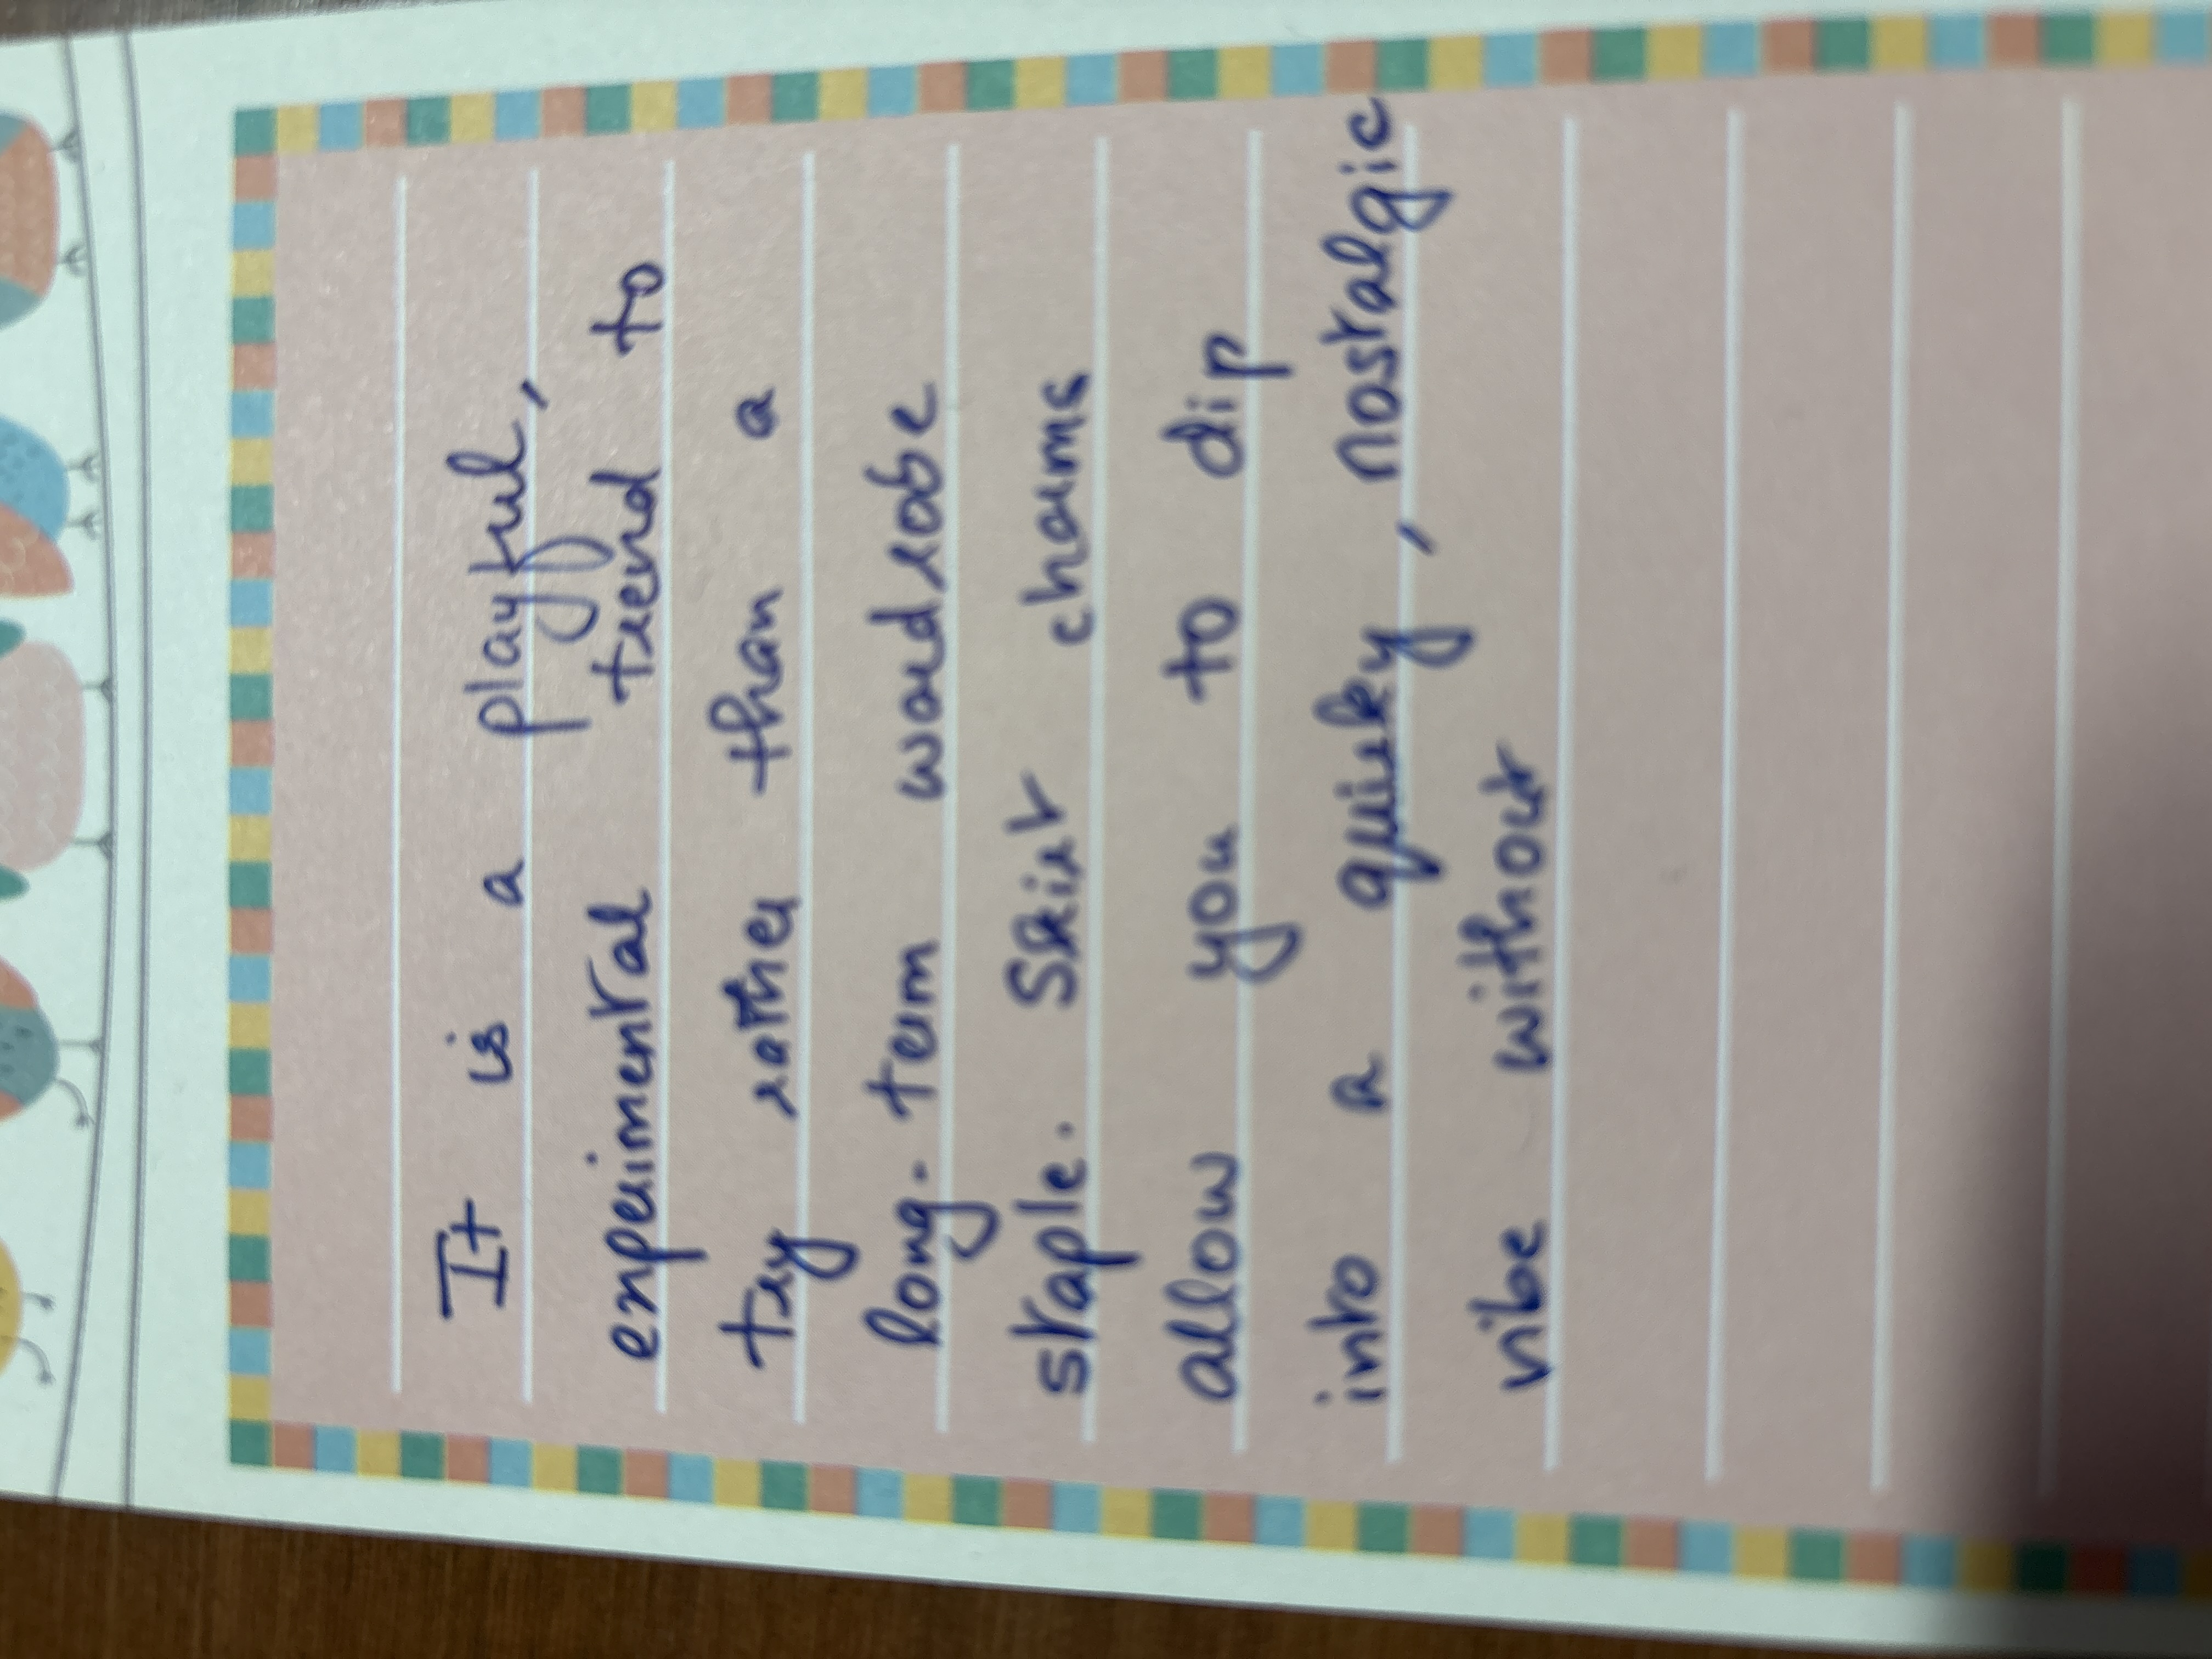 It is a playful,
experimental trend to
try rather than a
long-term wardrobe
staple. Skirt charms
allow you to dip
into a quirky, nostalgic
vibe without